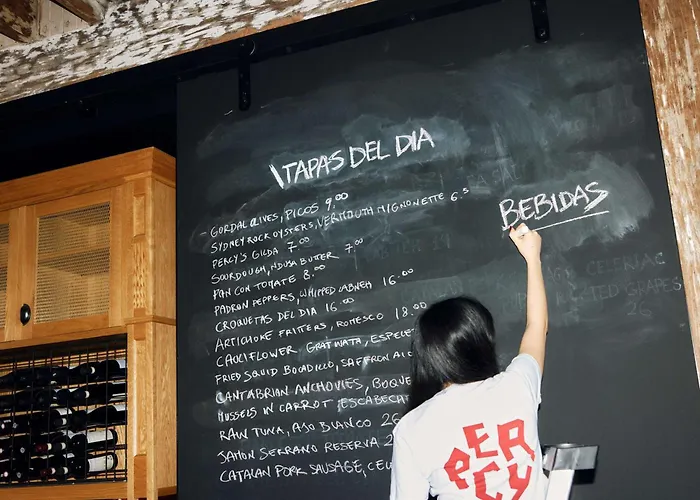 TAPAS DEL DIA
GORDAL OLIVES, PICOS 9.00
SYDNEY ROCK OYSTERS, VERMOUTH MIGNONETTE 6.5
PERCY'S GILDA 7.00
SOURDOUGH, NDUSA BUTTER 7.00
PAN CON TOMATE 8.00
PADRON PEPPERS, WHIPPED LABNEH 16.00
CROQUETAS DEL DIA 16.00
ARTICHOKE FRITTERS, ROMESCO 18.00
CAULIFLOWER GRATINATA, ESPELE
FRIED SQUID BOCADILLO, SAFFRON AIO
CANTABRIAN ANCHOVIES, BOQUE
MUSSELS IN CARROT ESCABECH
RAW TUNA, AJO BLANCO 26
JAMON SERRANO RESERVA 2
CATALAN PORK SAUSAGE, CEL
BEBIDAS
CELERIAC
GRAPES
26
PERCY